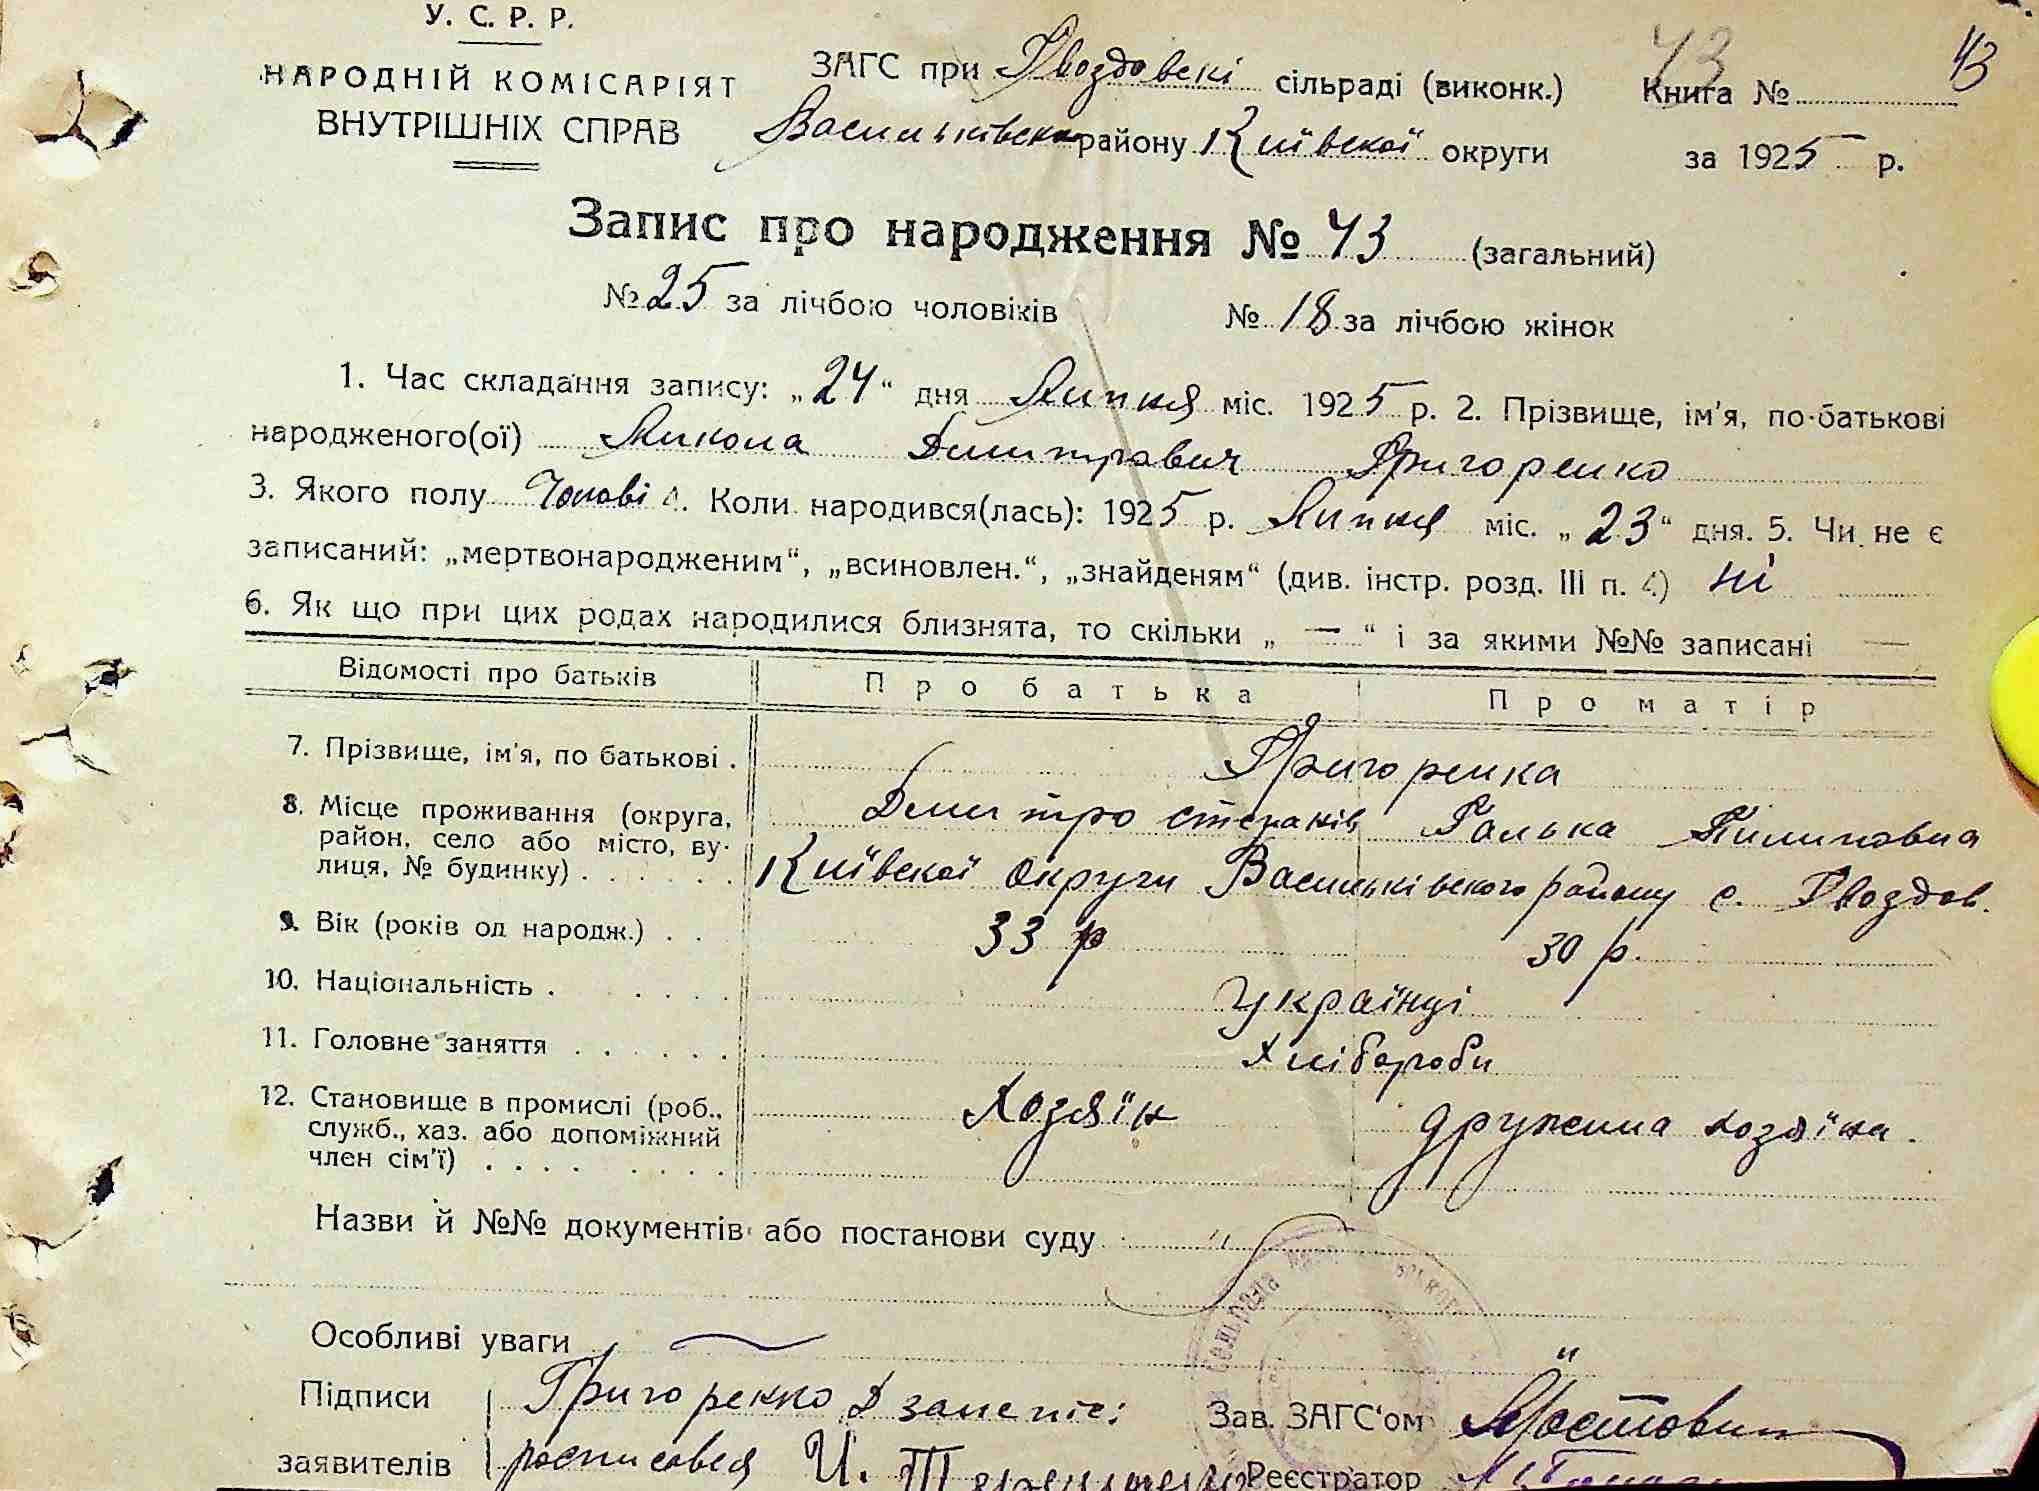 У. С. Р. Р.
НАРОДНІЙ КОМІСАРІЯТ
ВНУТРІШНІХ СПРАВ
ЗАГС при Гвоздовскі сільраді (виконк.)
Васильківськ району Київскої округи
43 43
Книга №
за 1925 р.
Запис про народження № 43 (загальний)
№ 25 за лічбою чоловіків № 18 за лічбою жінок
1. Час складання запису: „24“ дня Липня міс. 1925 р. 2. Прізвище, ім'я, по-батькові
народженого(ої) Микола Дмитрович Григоренко
3. Якого полу Чолові 4. Коли народився(лась): 1925 р. Липня міс. „23“ дня. 5. Чи не є
записаний: „мертвонародженим“, „всиновлен.“, „знайденям“ (див. інстр. розд. III п. 4) ні
6. Як що при цих родах народилися близнята, то скільки „ — “ і за якими №№ записані —
Відомості про батьків Про батька Про матір
7. Прізвище, ім'я, по батькові . Григоренка
Дмитро Галька Пилиповна
8. Місце проживання (округа,
район, село або місто, ву-
лиця, № будинку) . . . . . . Київскої округи Васильківского району с. Гвоздов.
9. Вік (років од народж.) . . 33 р 30 р.
10. Національність . . . . . . Українці
11. Головне заняття . . . . . . Хлібороби
12. Становище в промислі (роб.,
служб., хаз. або допоміжний
член сім'ї) . . . . . . . . Хозяїн дружина хозяїна.
Назви й №№ документів або постанови суду "
Особливі уваги
Підписи Григоренко Д
заявителів росписався И.
Зав. ЗАГС'ом Мостовий
Реєстратор